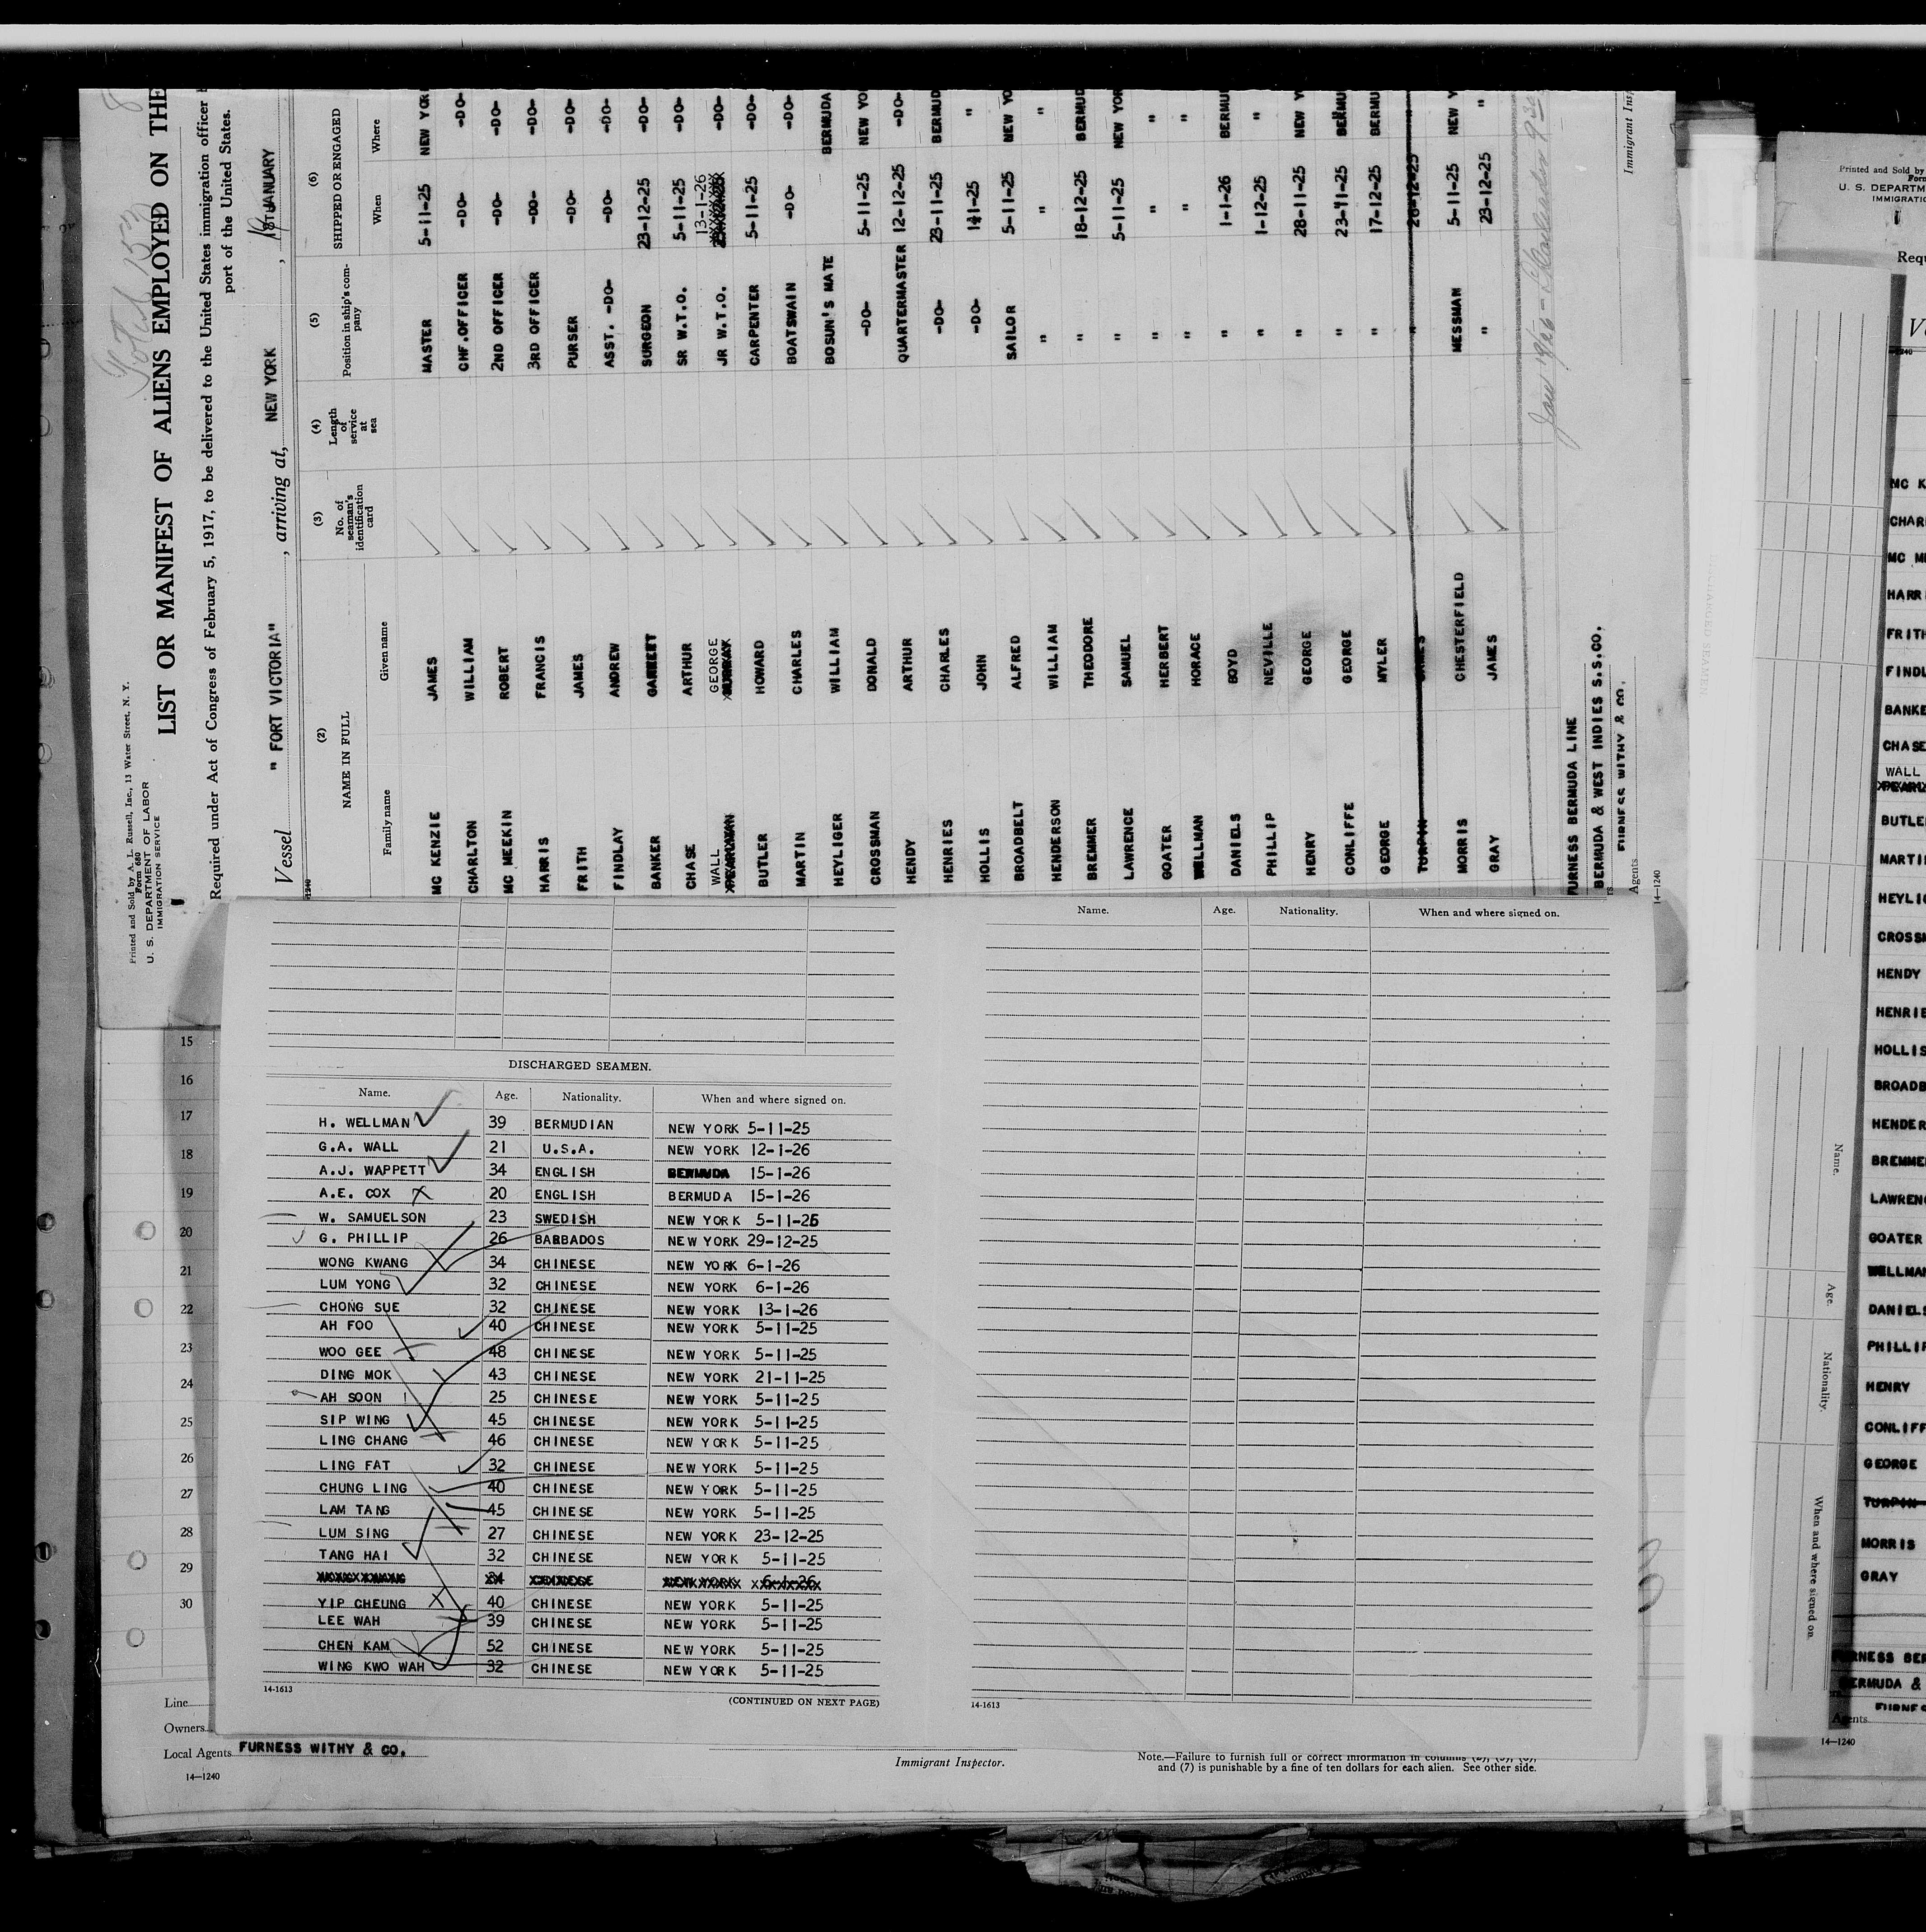 Printed and Sold by A. L. Russell, Inc., 13 Water Street, N. Y.
Form 680
U. S. DEPARTMENT OF LABOR
IMMIGRATION SERVICE
LIST OR MANIFEST OF ALIENS EMPLOYED ON THE
Required under Act of Congress of February 5, 1917, to be delivered to the United States immigration officer
port of the United States.
Vessel " FORT VICTORIA" , arriving at, NEW YORK , JANUARY
(2) (3) (4) (5) (6)
NAME IN FULL No. of seaman's identification card Length of service at sea Position in ship's company SHIPPED OR ENGAGED
Family name Given name When Where
MC KENZIE JAMES MASTER 5-11-25 NEW YOR
CHARLTON WILLIAM CHF.OFFICER -DO- -DO-
MC MEEKIN ROBERT 2ND OFFICER -DO- -DO-
HARRIS FRANCIS 3RD OFFICER -DO- -DO-
FRITH JAMES PURSER -DO- -DO-
FINDLAY ANDREW ASST. -DO- -DO- -DO-
BANKER GARNETT SURGEON 23-12-25 -DO-
CHASE ARTHUR SR W.T.O. 5-11-25 -DO-
WALL GEORGE JR W.T.O. 13-1-26 -DO-
BUTLER HOWARD CARPENTER 5-11-25 -DO-
MARTIN CHARLES BOATSWAIN -DO- -DO-
HEYLIGER WILLIAM BOSUN'S MATE BERMUDA
CROSSMAN DONALD -DO- 5-11-25 NEW YO
HENDY ARTHUR QUARTERMASTER 12-12-25 -DO-
HENRIES CHARLES -DO- 23-11-25 BERMUD
HOLLIS JOHN -DO- "
BROADBELT ALFRED SAILOR 5-11-25 NEW YO
HENDERSON WILLIAM " " "
BREMMER THEODORE " 18-12-25 BERMUD
LAWRENCE SAMUEL " 5-11-25 NEW YOR
GOATER HERBERT " " "
WELLMAN HORACE " " "
DANIELS BOYD " 1-1-26 BERMU
PHILLIP NEVILLE " 1-12-25 "
HENRY GEORGE " 28-11-25 NEW Y
CONLIFFE GEORGE " 23-11-25 BERMU
GEORGE MYLER " 17-12-25 BERMU
TURPIN JAMES " 26-12-25
MORRIS CHESTERFIELD MESSMAN 5-11-25 NEW Y
GRAY JAMES " 23-12-25 "
FURNESS BERMUDA LINE
BERMUDA & WEST INDIES S.S.CO.
Agents FURNESS WITHY & CO.
14—1240
Immigrant Insp
Name. Age. Nationality. When and where signed on.
DISCHARGED SEAMEN.
Name. Age. Nationality. When and where signed on.
H. WELLMAN 39 BERMUDIAN NEW YORK 5-11-25
G.A. WALL 21 U.S.A. NEW YORK 12-1-26
A.J. WAPPETT 34 ENGLISH BERMUDA 15-1-26
A.E. COX 20 ENGLISH BERMUDA 15-1-26
W. SAMUELSON 23 SWEDISH NEW YORK 5-11-25
G. PHILLIP 26 BARBADOS NEW YORK 29-12-25
WONG KWANG 34 CHINESE NEW YORK 6-1-26
LUM YONG 32 CHINESE NEW YORK 6-1-26
CHONG SUE 32 CHINESE NEW YORK 13-1-26
AH FOO 40 CHINESE NEW YORK 5-11-25
WOO GEE 48 CHINESE NEW YORK 5-11-25
DING MOK 43 CHINESE NEW YORK 21-11-25
AH SOON 25 CHINESE NEW YORK 5-11-25
SIP WING 45 CHINESE NEW YORK 5-11-25
LING CHANG 46 CHINESE NEW YORK 5-11-25
LING FAT 32 CHINESE NEW YORK 5-11-25
CHUNG LING 40 CHINESE NEW YORK 5-11-25
LAM TANG 45 CHINESE NEW YORK 5-11-25
LUM SING 27 CHINESE NEW YORK 23-12-25
TANG HAI 32 CHINESE NEW YORK 5-11-25
YIP CHEUNG 40 CHINESE NEW YORK 5-11-25
LEE WAH 39 CHINESE NEW YORK 5-11-25
CHEN KAM 52 CHINESE NEW YORK 5-11-25
WING KWO WAH 32 CHINESE NEW YORK 5-11-25
14-1613 (CONTINUED ON NEXT PAGE) 14-1613
15
16
17
18
19
20
21
22
23
24
25
26
27
28
29
30
Line
Owners
Local Agents FURNESS WITHY & CO.
14—1240
Immigrant Inspector.
Note.—Failure to furnish full or correct information in columns
and (7) is punishable by a fine of ten dollars for each alien. See other side.
Printed and Sold by
Form
U. S. DEPARTM
IMMIGRATIO
Requ
MC K
CHAR
MC M
HARR
FRITH
FINDL
BANKE
CHASE
WALL
BUTLE
MARTI
HEYLIG
CROSSM
HENDY
HENRIE
HOLLIS
BROADB
HENDER
BREMME
LAWREN
GOATER
WELLMAN
DANIELS
PHILLIP
HENRY
CONLIFF
GEORGE
TURPIN
MORRIS
GRAY
RNESS BER
ERMUDA &
FURNES
Agents
14—1240
Name. Age. Nationality. When and where signed on.